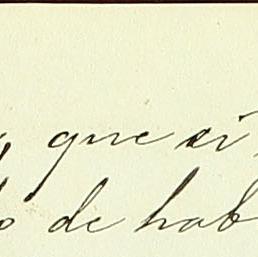 que si
de hab